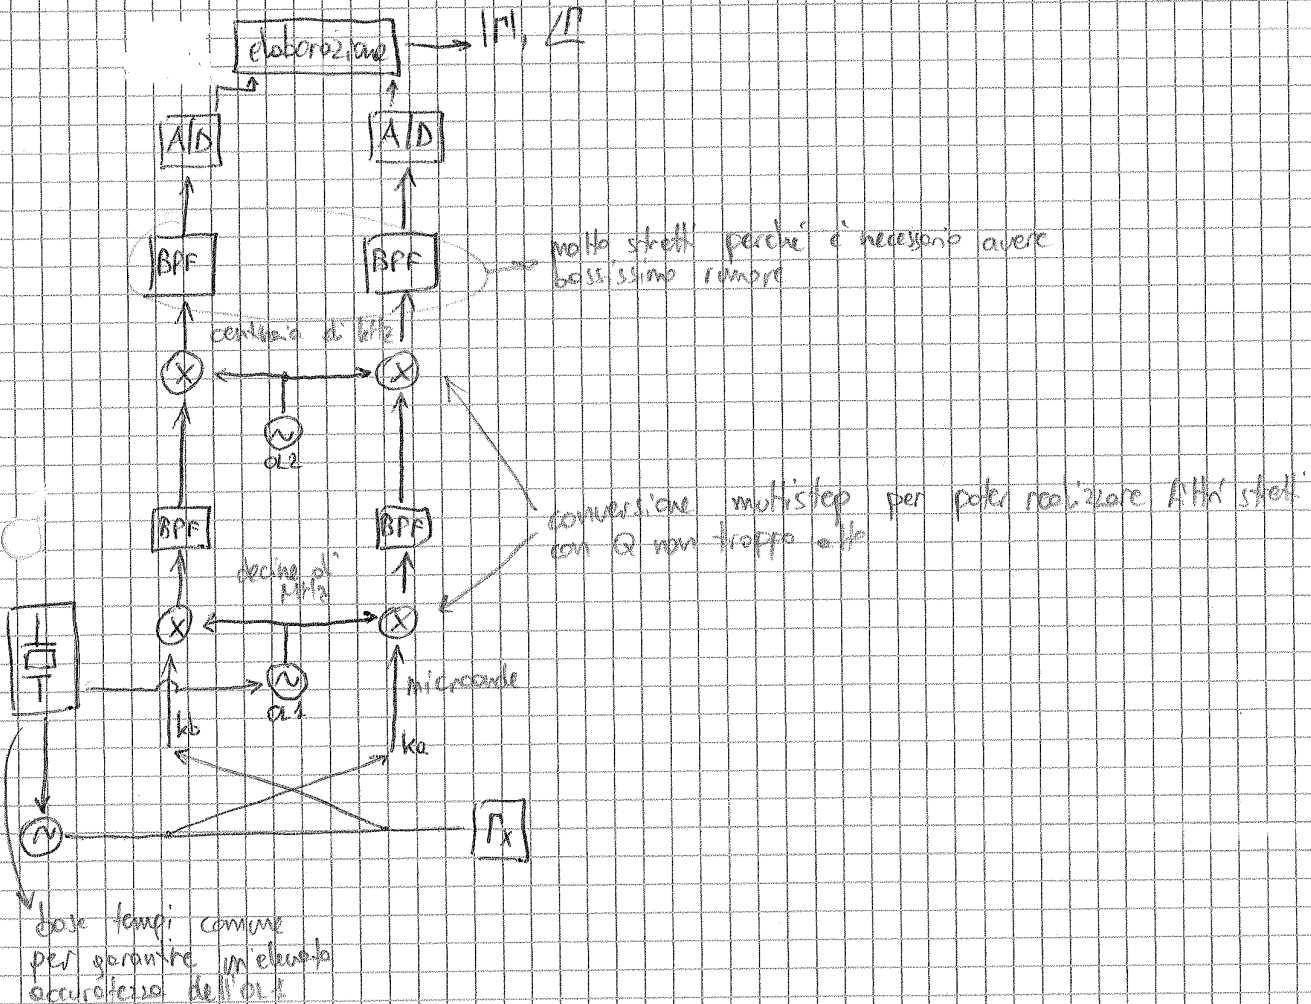 elaborazione
|Γ|, ∠Γ
A/D
A/D
BPF
BPF
molto stretti perché è necessario avere
bassissimo rumore
centinaia di kHz
X
X
OL2
conversione multistep per poter realizzare filtri stretti
con Q non troppo alto
BPF
BPF
decine di
MHz
X
X
OL1
microonde
kb
ka
Γx
base tempi comune
per garantire un'elevata
accuratezza dell'OL1